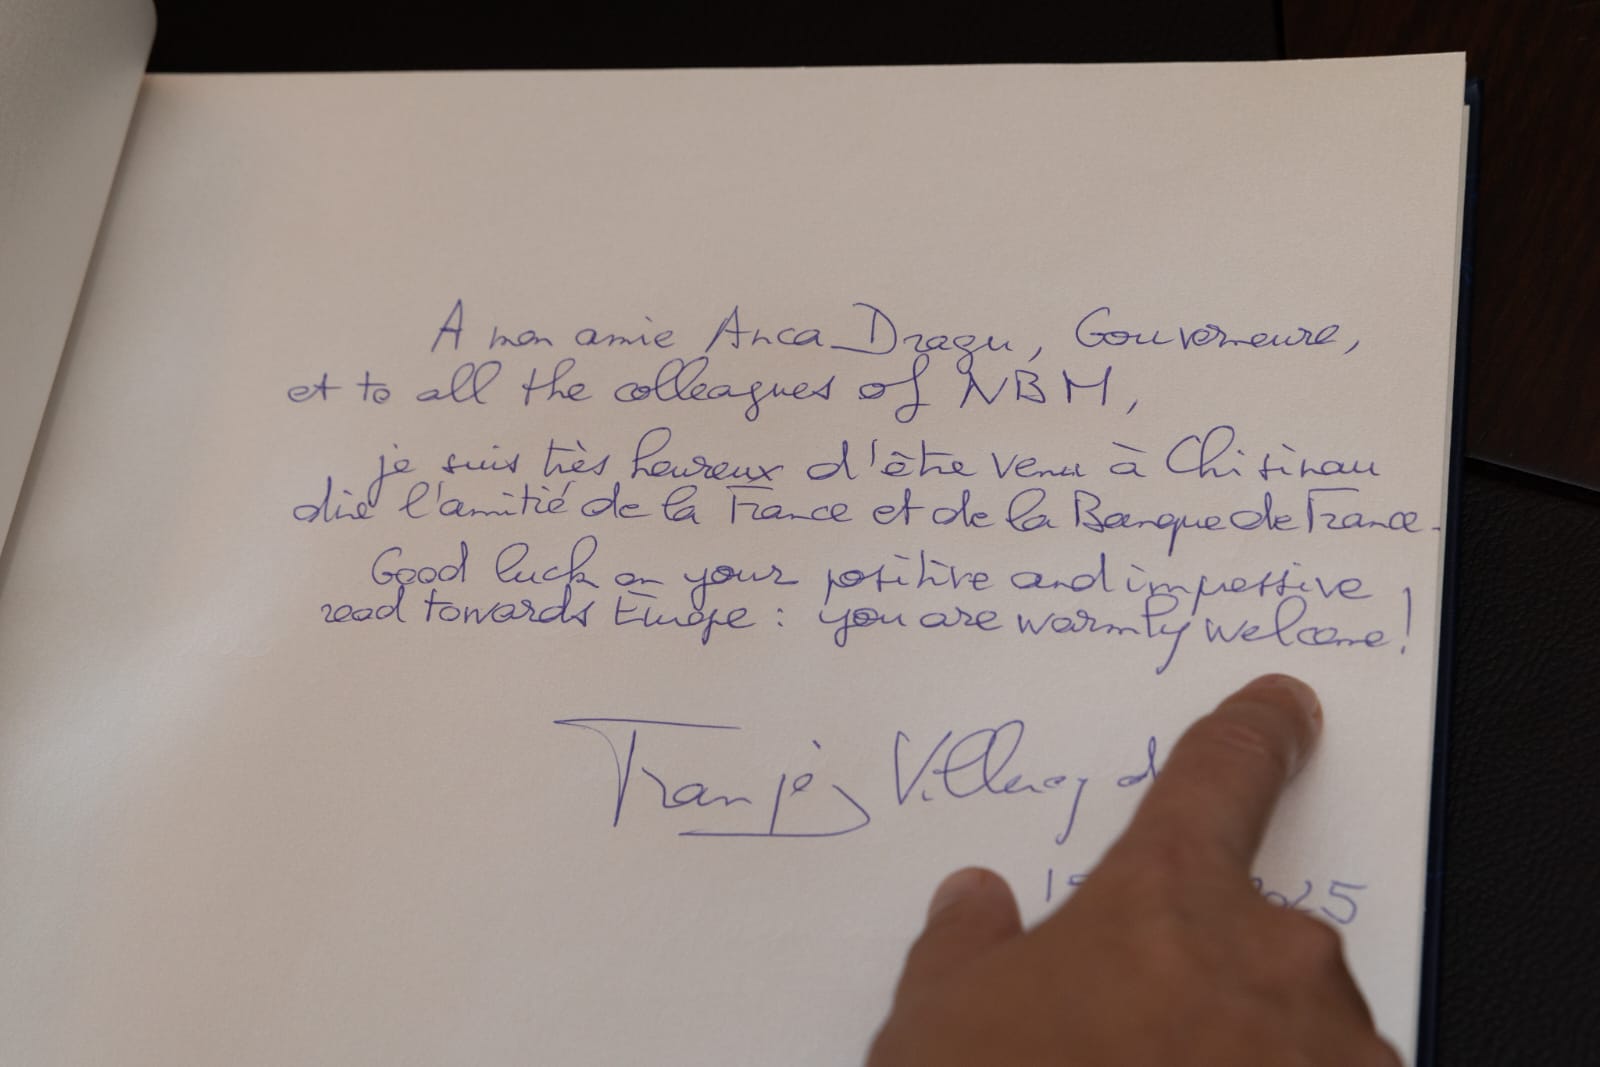 A mon amie Anca Dragu, Gouverneure,
et to all the colleagues of NBM,
je suis très heureux d'être venu à Chisinau
dire l'amitié de la France et de la Banque de France.
Good luck on your positive and impressive
road towards Europe : you are warmly welcome!
François Villeroy d
2025